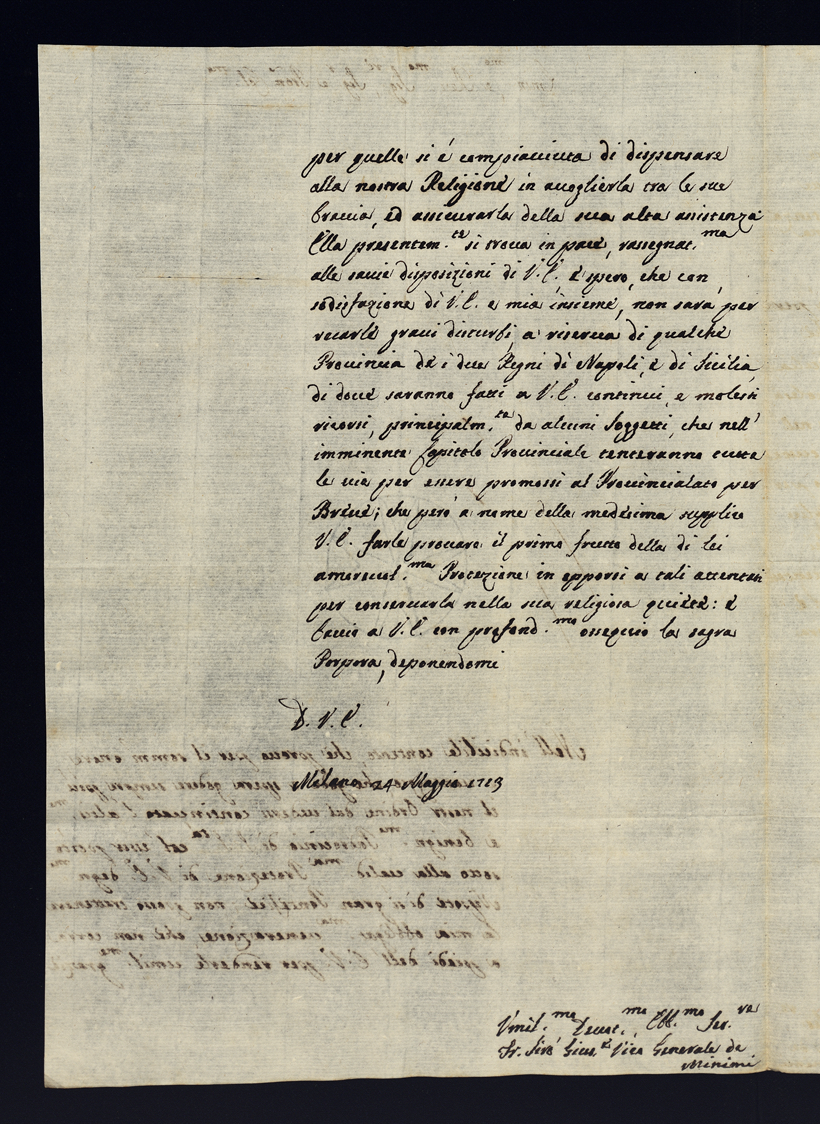 per quelle si è compiacciuta di dispensare
alla nostra Religione in accoglierla tra le sue
braccia, ed assicurarla della sua alta assistenza
Ella presentem.te si trova in pace, rassegnat.ma
alle savie disposizioni di V.E. e spero, che con
sodisfazione di V.E. e mia insieme, non sarà per
recarle gravi disturbi, a riserva di qualche
Provincia de i due Regni di Napoli, e di Sicilia,
di dove saranno fatti a V.E. continui, e molesti
ricorsi, principalm.te da alcuni Soggetti, che nell'
imminente Capitolo Provinciale tenteranno tutte
le vie per essere promossi al Provincialato per
Breve; che però a nome della medesima supplico
V.E. farle provare il primo frutto della di lei
amorevol.ma Protezione in opporsi a tali attentati
per conservarla nella sua religiosa quiete: e
bacio a V.E. con profond.mo ossequio la sagra
Porpora, deponendomi
D. V. E.
Milano 24 Maggio 1713
Vmil.mo Devot.mo Obb.mo Ser.re
Fr. Gius.e Vica Generale de
Minimi